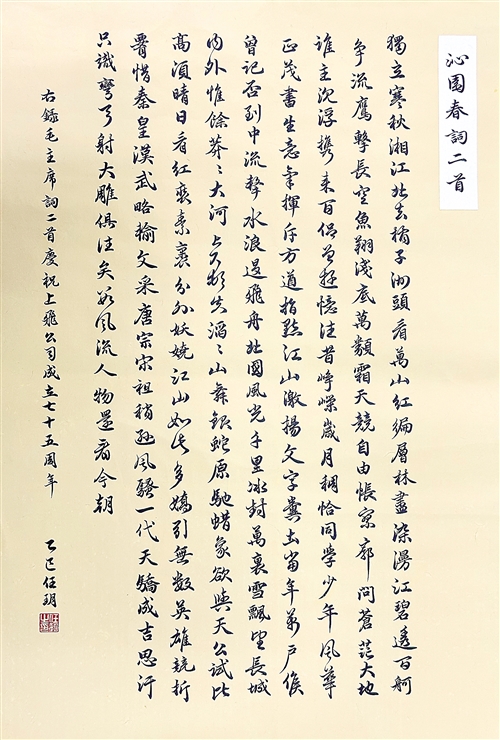 沁園春詞二首
獨立寒秋湘江北去橘子洲頭看萬山紅徧層林盡染漫江碧透百舸
争流鷹擊長空魚翔淺底萬類霜天競自由悵寥廓問蒼茫大地
誰主沈浮攜來百侣曾遊憶往昔崢嶸歲月稠恰同學少年風華
正茂書生意氣揮斥方遒指點江山激揚文字糞土當年萬户侯
曾記否到中流擊水浪遏飛舟北國風光千里冰封萬裏雪飄望長城
内外惟餘莽〻大河上下頓失滔〻山舞銀蛇原馳蜡象欲與天公試比
高須晴日看紅裝素裹分外妖嬈江山如此多嬌引無數英雄競折
腰惜秦皇漢武略輸文采唐宗宋祖稍遜風騷一代天驕成吉思汗
只識彎弓射大雕俱往矣数風流人物還看今朝
右錄毛主席詞二首慶祝上飛公司成立七十五周年
乙巳任玥